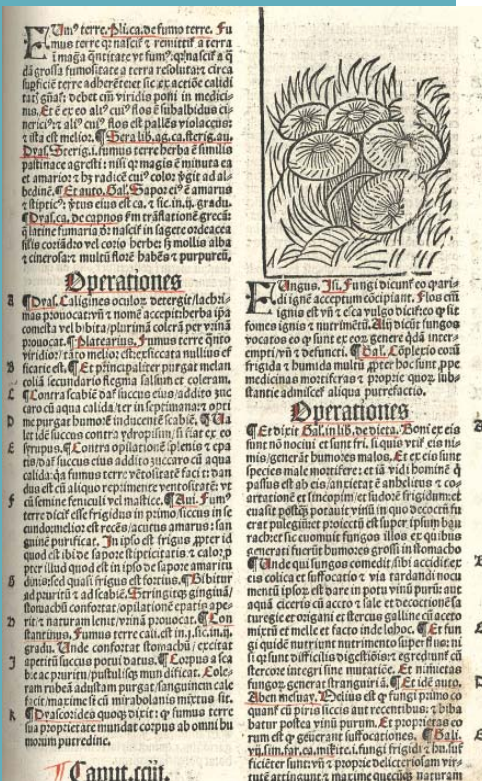 Umꝰ terre. Pli. ca. de fumo terre. Fu
mus terre qꝛ nascit̃ ⁊ remittit̃ a terra
dã grossa fumositate a terra resoluta⁊ circa
supficiẽ terre
debet em̃ viridis poni in medici
nis. Et ex eo aliꝰ cuiꝰ flos ẽ subalbidus ci
nericiꝰ⁊ aliꝰ cuiꝰ flos est pallẽs violaceus:
⁊ ista est melior. Sera lib. ag. ca. sterig. au.
Dyas. Sterig. i. fumus terre herba ẽ similis
pastinace agresti: nisi magis ẽ minuta ea
et amarior
bedinẽ. Et auto. Gal. Sapor eiꝰ ẽ amarus
Dyas. ca. de capnos
latine fumaria
⁊ cinerosa⁊ multũ florẽ habẽs ⁊ purpureũ.
Operationes
A Dyas. Caligines oculoꝝ detergit/lachri-
mas prouocat: vñ ⁊ nomẽ accepit: herba ipa
comesta vel bibita/plurimã colerã per vrinã
prouocat. Platearius. Fumus terre ̃to
viridior/tãto melior est: exsiccata nullius ef
B ficacie est. Et principaliter purgat melan
coliã secundario flegma salsum et coleram.
C Contra scabiẽ dat̃ succus eiuꝰ/addito zuc
caro cũ aqua calida/ter in septimana: ⁊ opti
D me purgat humorẽ inducentẽ scabiẽ. Ua
let idẽ succus contra ydropisim/si fiat ex eo
E syrupus. Contra opilationẽ splenis ⁊ epa
tis/dat̃ succus eius addito zuccaro cũ aqua
F cũ semine feniculi vel mastice. Aui. Fumꝰ
terre dicit̃ esse frigidus in primo/siccus in se
cundo: melior est recẽs/acutus amarus: san
guinẽ purificat. In ipso est frigus pter id
quod est ibi de sapore stipticitatis ⁊ calor p
pter illud quod est in ipso de sapore amaritu
G dinis: sed quasi frigus est fortius. Bibitur
ad pruritũ ⁊ ad scabiẽ. Stringit gingiuã/
stomachũ confortat/opilationẽ epatis ape-
H rit/⁊ naturam lenit/vrinã prouocat. Con
stantinus. Fumus terre cali. est in .j. sic. in .ij.
gradu. Unde confortat stomachũ/ excitat
J apetitũ succus potui datus. Corpus a sca
bie: ac pruritu/pustulisqꝫ mundificat. Cole-
ram rubeã adustam purgat/sanguinem cale
facit/maxime si cũ mirabolanis mixtus sit.
K Dyascorides quoqꝫ dixit: fumus terre
sua proprietate mundat corpus ab omni hu
morum putredine.
Caput. ccij.
Ungus. Isi. Fungi dicunt̃ eo ari-
di ignẽ acceptum cõcipiant. Flos em̃
ignis est vñ ⁊ esca vulgo dicit̃: eo sit
fomes ignis ⁊ nutrimẽtũ. Alij dicũt fungos
vocatos eo sunt ex eoꝝ genere qdã inter
empti/vñ ⁊ defuncti. Gal. Cõplexio eorũ
frigida ⁊ humida multũ pter hoc sunt ppe
medicinas mortiferas ⁊ proprie quoꝝ sub-
stantie admiscet̃ aliqua putrefactio.
Operationes
Et dixit Gal. in lib. de dieta. Boni ex eis
sunt nõ nociui et sunt fri. si quis vtit̃ eis ni-
mis/generãt humores malos. Et ex eis sunt
species male mortifere: et iã vidi hominẽ
passus est ab eis/anxietatẽ anhelitus ⁊ co-
artationẽ et sincopim/et sudorẽ frigidum: et
euasit
erat pulegiũ: et proiectũ est super ipsum bau
rach: et sic euomuit fungos illos ex quibus
generati fuerũt humores grossi in stomacho
Unde qui fungos comedit sibi accidit ex
eis colica et suffocatio ⁊ via tardandi nocu
mentũ ipsoꝝ est dare in potu vinũ purũ: aut
aquã ciceris cũ aceto ⁊ sale et decoctionẽ sa
turegie et origani et stercus galline cũ aceto
mixtũ et melle et facto inde lohoc. Et fun
gi quidẽ nutriunt nutrimento superfluo: ni
si sunt difficilis digestiõis: et egrediunt̃ cũ
stercore integri sine mutatiõe. Et nimietas
fungoꝝ generat stranguriã. Et idẽ auto.
Aben mesuay. Melius est fungi primo co
quant̃ cũ piris siccis aut recentibus: ⁊ biba
batur postea vinũ purum. Et proprietas eo
rum est generant suffocationes. Gali.
fungi frigidi ⁊ hu. suf
ficiẽter sunt: vñ ⁊ proprie deliteriosam vir-
tutẽ attingunt ⁊ maxime quecũqꝫ naturam